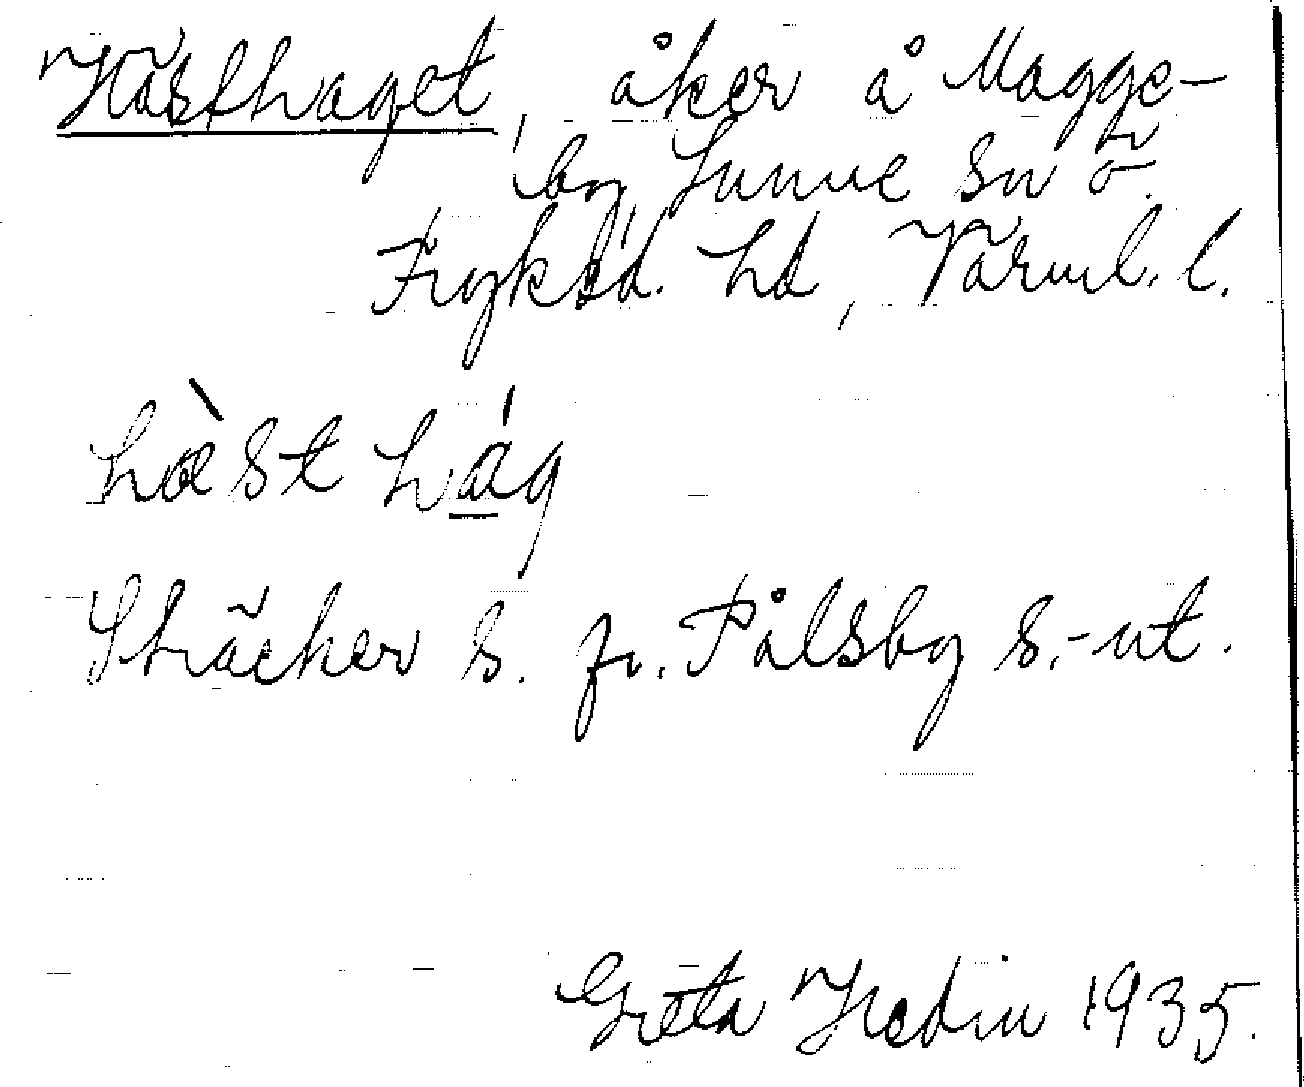 Hästhaget, åker å Magge-
by Sunne sn ö.
Fryksd. hd, Värml. l.
hæ̀st hág
Sträcker s. fr. Pålsby s.-ut.
Greta Hedin 1935.